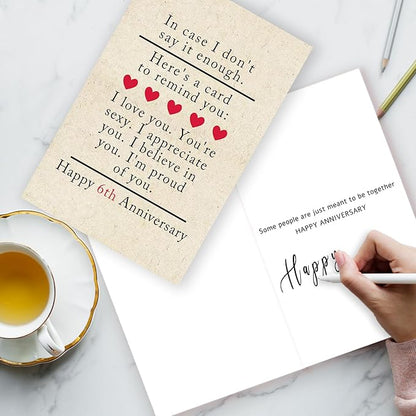 In case I don't
say it enough.
Here's a card
to remind you:
I love you. You're
sexy. I appreciate
you. I believe in
you. I'm proud
of you.
Happy 6th Anniversary
Some people are just meant to be together
HAPPY ANNIVERSARY
Happy